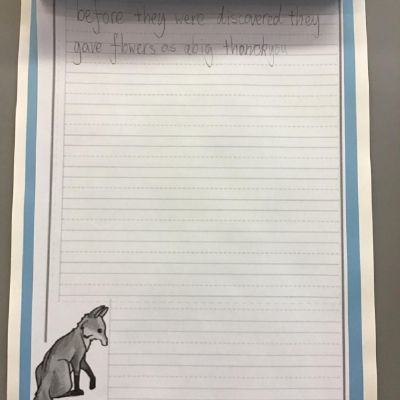 before they were discovered they
gave flowers as a big thankyou